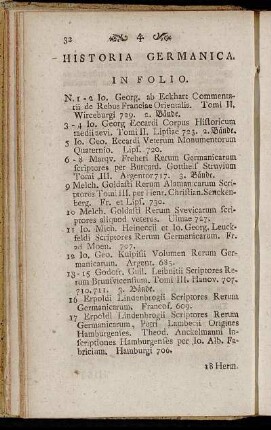 52 4
HISTORIA GERMANICA.
IN FOLIO.
N. 1 - 2 Io. Georg. ab Eckhart Commenta-
rii de Rebus Franciae Orientalis. Tomi II.
Wirceburgi 729. 2. Bände.
3 - 4 Io. Georg Eccardi Corpus Historicum
medii aevi. Tomi II. Lipsiae 723. 2. Bände.
5 Io. Geo. Eccardi Veterum Monumentorum
Quaternio. Lipf. 720.
6 - 8 Marqv. Freheri Rerum Germanicarum
scriptores per Burcard. Gotthelf Struvium
Tomi III. Argentor. 717. 3. Bände.
9 Melch. Goldasti Rerum Alamanicarum Scri-
ptores Tomi III. per Henr. Christian. Sencken-
berg. Fr. et Lipf. 730.
10 Melch. Goldasti Rerum Svevicarum Scri-
ptores aliquod veteres. Ulmae 727.
11 Io. Mich. Heineccii et Io. Georg. Leuck-
feldi Scriptores Rerum Germanicarum. Fr.
ad Moen. 707.
12 Io. Geo. Kulpisii Volumen Rerum Ger-
manicarum. Argent. 685.
13 - 15 Godofr. Guil. Leibnitii Scriptores Re-
rum Brunsvicensium. Tomi III. Hanov. 707.
710. 711. 3. Bände.
16 Erpoldi Lindenbrogii Scriptores Rerum
Germanicarum, Francof. 609.
17 Erpoldi Lindenbrogii Scriptores Rerum
Germanicarum, Petri Lambecii Origines
Hamburgenses. Theod. Anckelmanni In-
scriptiones Hamburgenses per Io. Alb. Fa-
bricium. Hamburgi 706.
18 Herm.